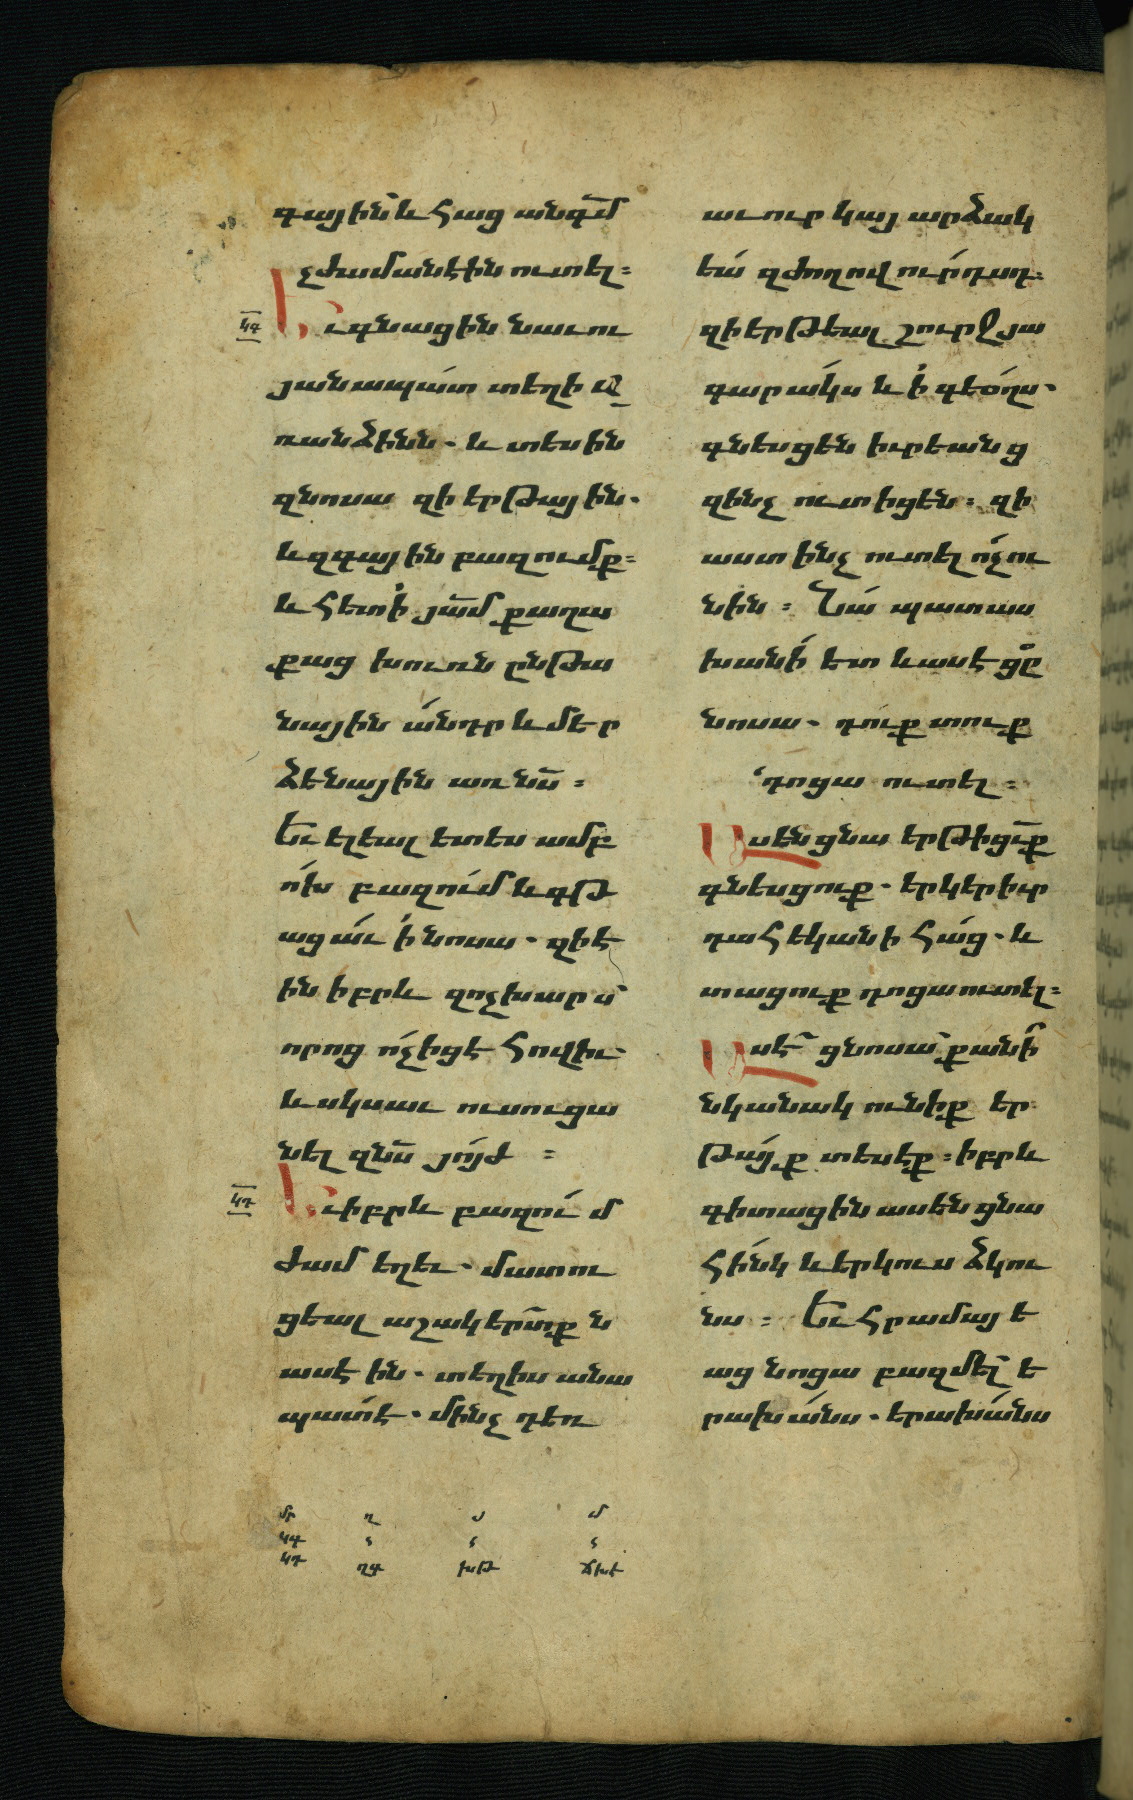 գային և հաց անգմ̄
չժամանէին ուտել։
կգ Եւ գնացին նաւու
յանապատ տեղի մի
առանձինն. և տեսին
զնոսա զի երթային.
և զգային բազումք։
և հետի յամ̄ քաղա
քաց խուռն ընթա
նային անդր և մեր
ձենային առ նս̄։
Եւ ելեալ ետես ամբ
ոխ բազում և գթ
ացաւ ի նոսա. զի է
ին իբրև զոչխարս
որոց ոչ իցէ հովիւ.
և սկսաւ ուսուցա
նել զնս̄ յոյժ ։
կդ Եւ իբրև բազում
ժամ եղեւ. մատու
ցեալ աշակերտ̄քն
ասէին. տեղիս անա
պատ է. մինչ դեռ
աւուր կայ արձակ
եա զժողովուրդդ.
զի երթեալ շուրջ յա
գարակս և ի գեօղս.
գնեսցեն իւրեանց
զինչ ուտիցեն։ զի
աստ ինչ ուտել ոչ ու
նին։ Նա պատաս
խանի ետ և ասէ ցը
նոսա. դուք տուք
դոցա ուտել։
Ասեն ցնա երթիցուք
գնեսցուք. երկերիւր
դահեկանի հաց. և
տացուք դոցա ուտել։
Ասէ ցնոսա քանի
նկանակ ունիք եր
թայք տեսէք։ իբրև
գիտացին ասեն ցնա
հինկ և երկուս ձկու
նս։ Եւ հրամայե
աց նոցա բազմել ե
րախանս. երախանս
մր ղ ս մ
կգ
կդ ղգ խթ ճխէ